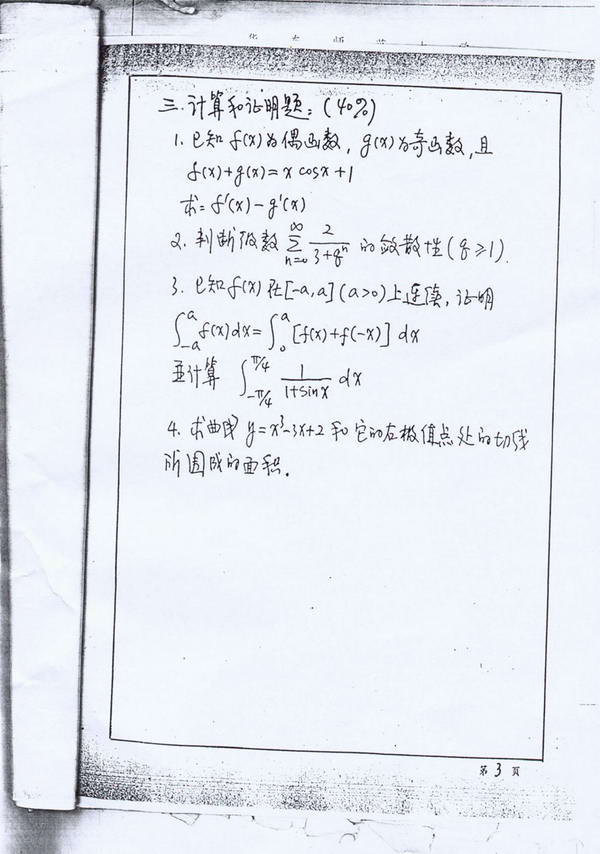 华东师范大学
三.计算和证明题:(40%)
1. 已知 f(x)为偶函数, g(x)为奇函数, 且
f(x)+g(x)=x cosx+1
求: f'(x)-g'(x)
2. 判断级数 ∑_{n=0}^{∞} 2/(3+q^n) 的敛散性(q≥1).
3. 已知f(x)在[-a,a](a>0)上连续, 证明
∫_{-a}^{a} f(x)dx=∫_{0}^{a} [f(x)+f(-x)] dx
并计算 ∫_{-π/4}^{π/4} 1/(1+sinx) dx
4. 求曲线 y=x³-3x+2 和它的右极值点处的切线
所围成的面积.
第 3 页